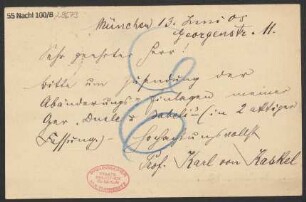 55 Nachl 100/B
München 13. Juni 05
Georgenstr. 11.
Sehr geehrter Herr!
bitte um Zusendung der
Abänderungs-Einlagen meiner
Oper "Dusle & Babeli" (in 2 aktiger
Fassung) - Hochachtungsvollst
Prof. Karl von Kaskel